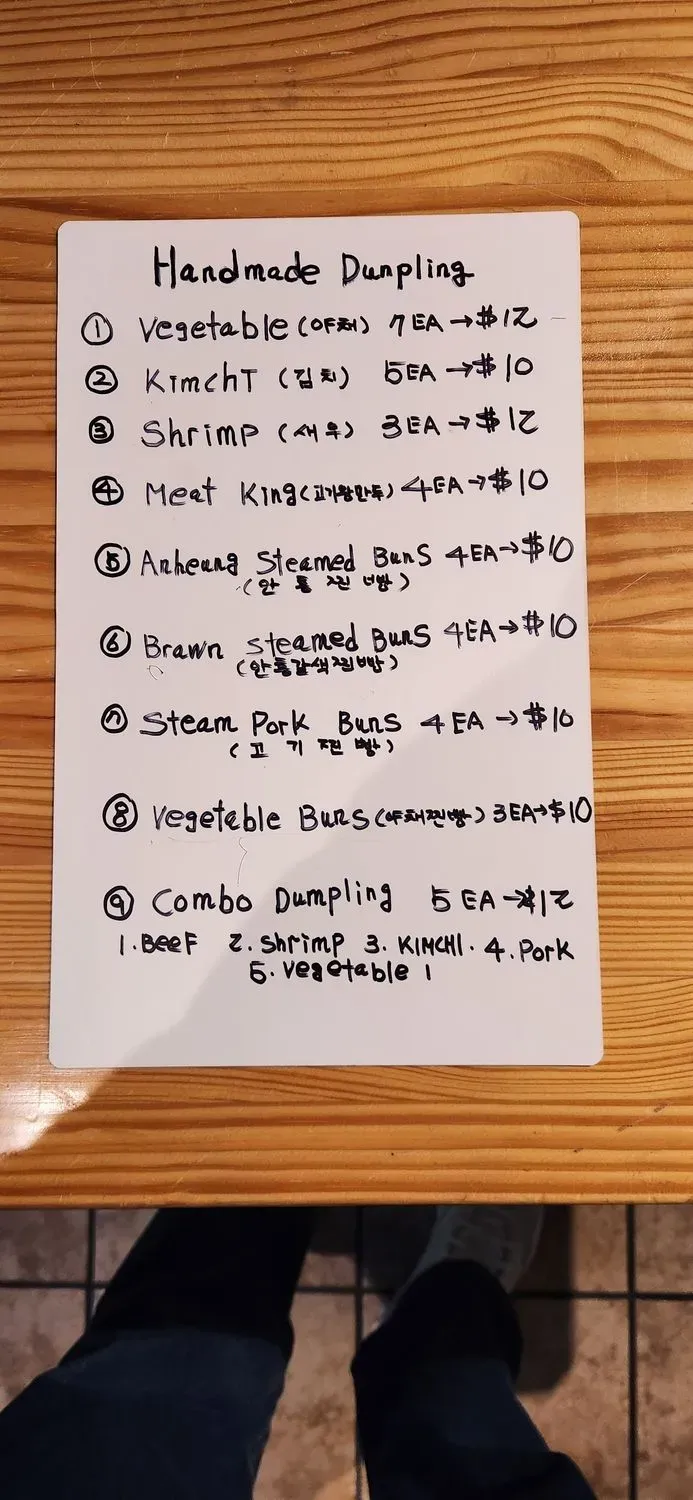 Handmade Dunpling
① Vegetable (야채) 7 EA → $12
② KimchI (김치) 5EA → $10
③ Shrimp (새우) 3EA → $12
④ Meat King (고기왕만두) 4EA → $10
⑤ Anheung Steamed Buns 4EA → $10
(안흥찐빵)
⑥ Brawn steamed Buns 4EA → $10
(안흥갈색찐빵)
⑦ Steam Pork Buns 4 EA → $10
(고기찐빵)
⑧ Vegetable Buns (야채찐빵) 3EA → $10
⑨ Combo Dumpling 5 EA → $12
1. BeeF 2. Shrimp 3. KIMCHI. 4. Pork
5. Vegetable 1